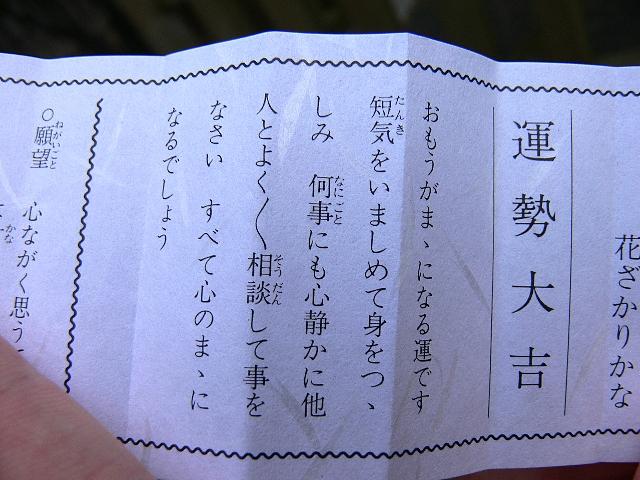 花ざかりかな
運勢大吉
おもうがまゝになる運です
短気をいましめて身をつゝ
たんき
しみ 何事にも心静かに他
なにごと
人とよく〱相談して事を
そうだん
なさい すべて心のまゝに
なるでしょう
○願望 心ながく思う
ねがいごと
かな